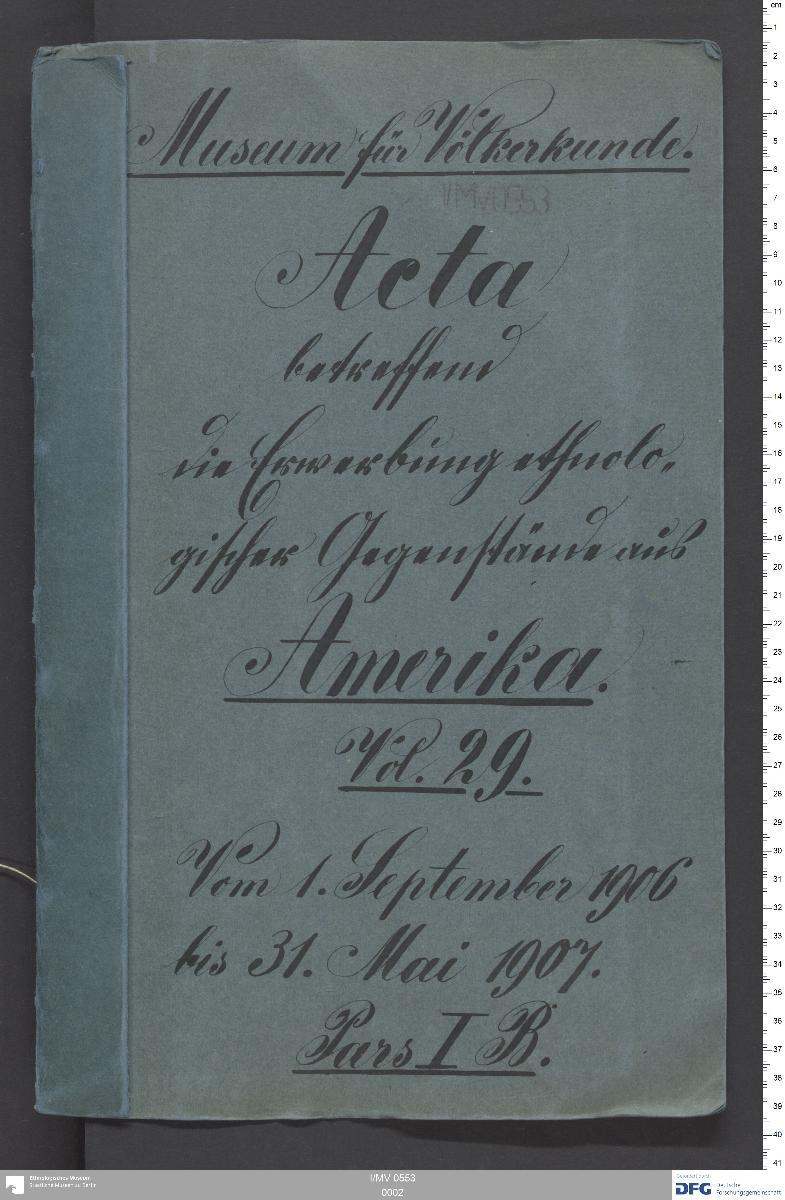 Museum für Völkerkunde.
I/MV 0553
Acta
betreffend
die Erwerbung ethnolo-
gischer Gegenstände aus
Amerika.
Vol. 29.
Vom 1. September 1906
bis 31. Mai 1907.
Pars I B.
cm
1
2
3
4
5
6
7
8
9
10
11
12
13
14
15
16
17
18
19
20
21
22
23
24
25
26
27
28
29
30
31
32
33
34
35
36
37
38
39
40
41
Ethnologisches Museum
Staatliche Museen zu Berlin
I/MV 0553
0002
Gefördert durch
DFG Deutsche
Forschungsgemeinschaft